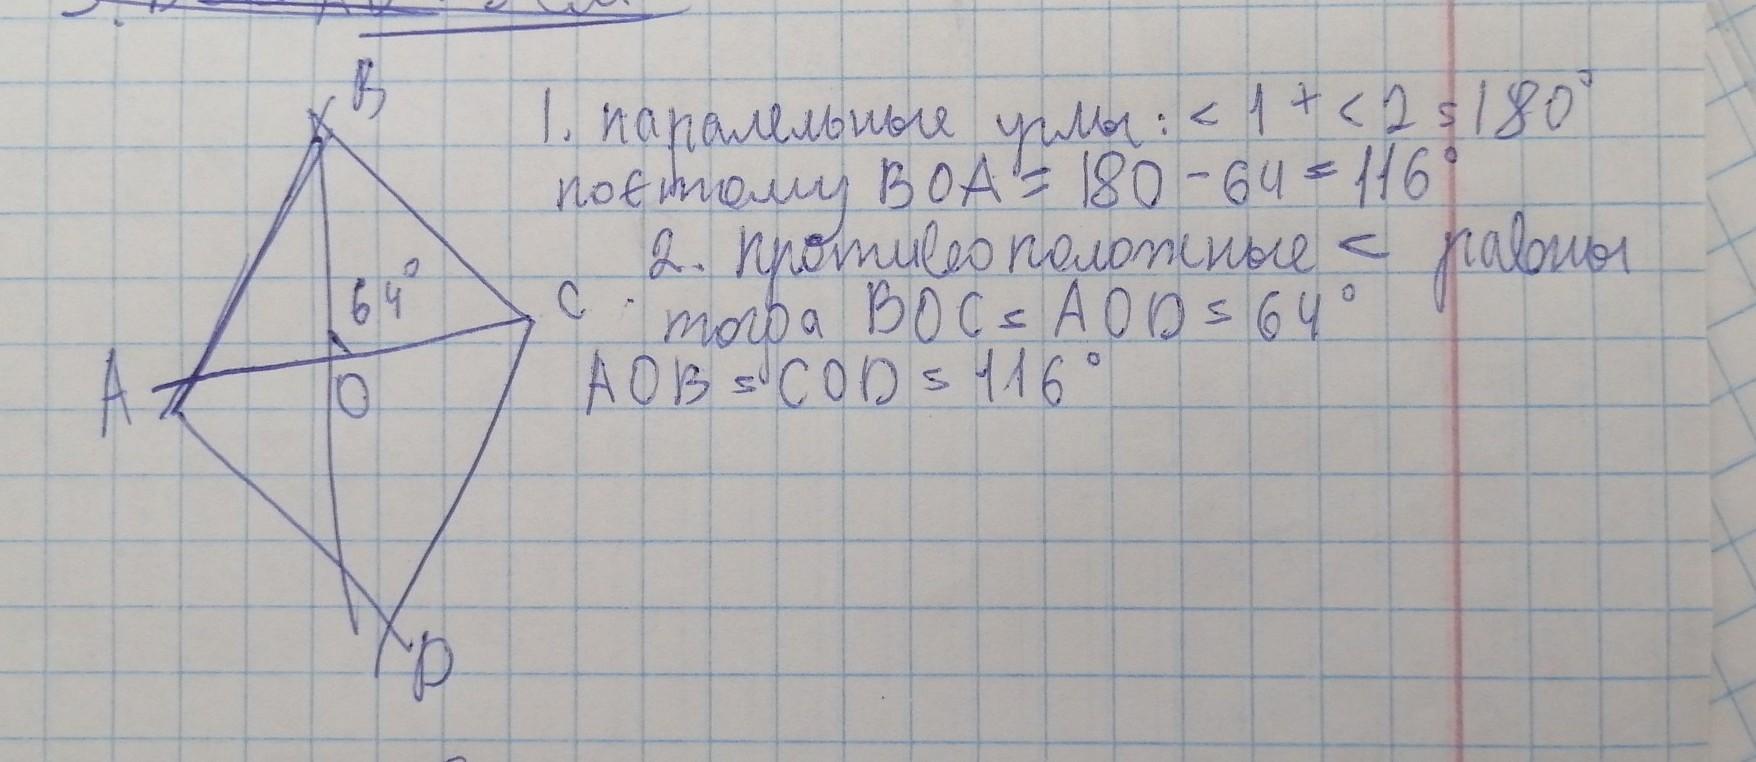 B
1. паралельные углы: < 1 + < 2 = 180°
поетому BOA = 180 - 64 = 116°
2. противоположные < равны
64°
C
тогда BOC = AOD = 64°
A
O
AOB = COD = 116°
D